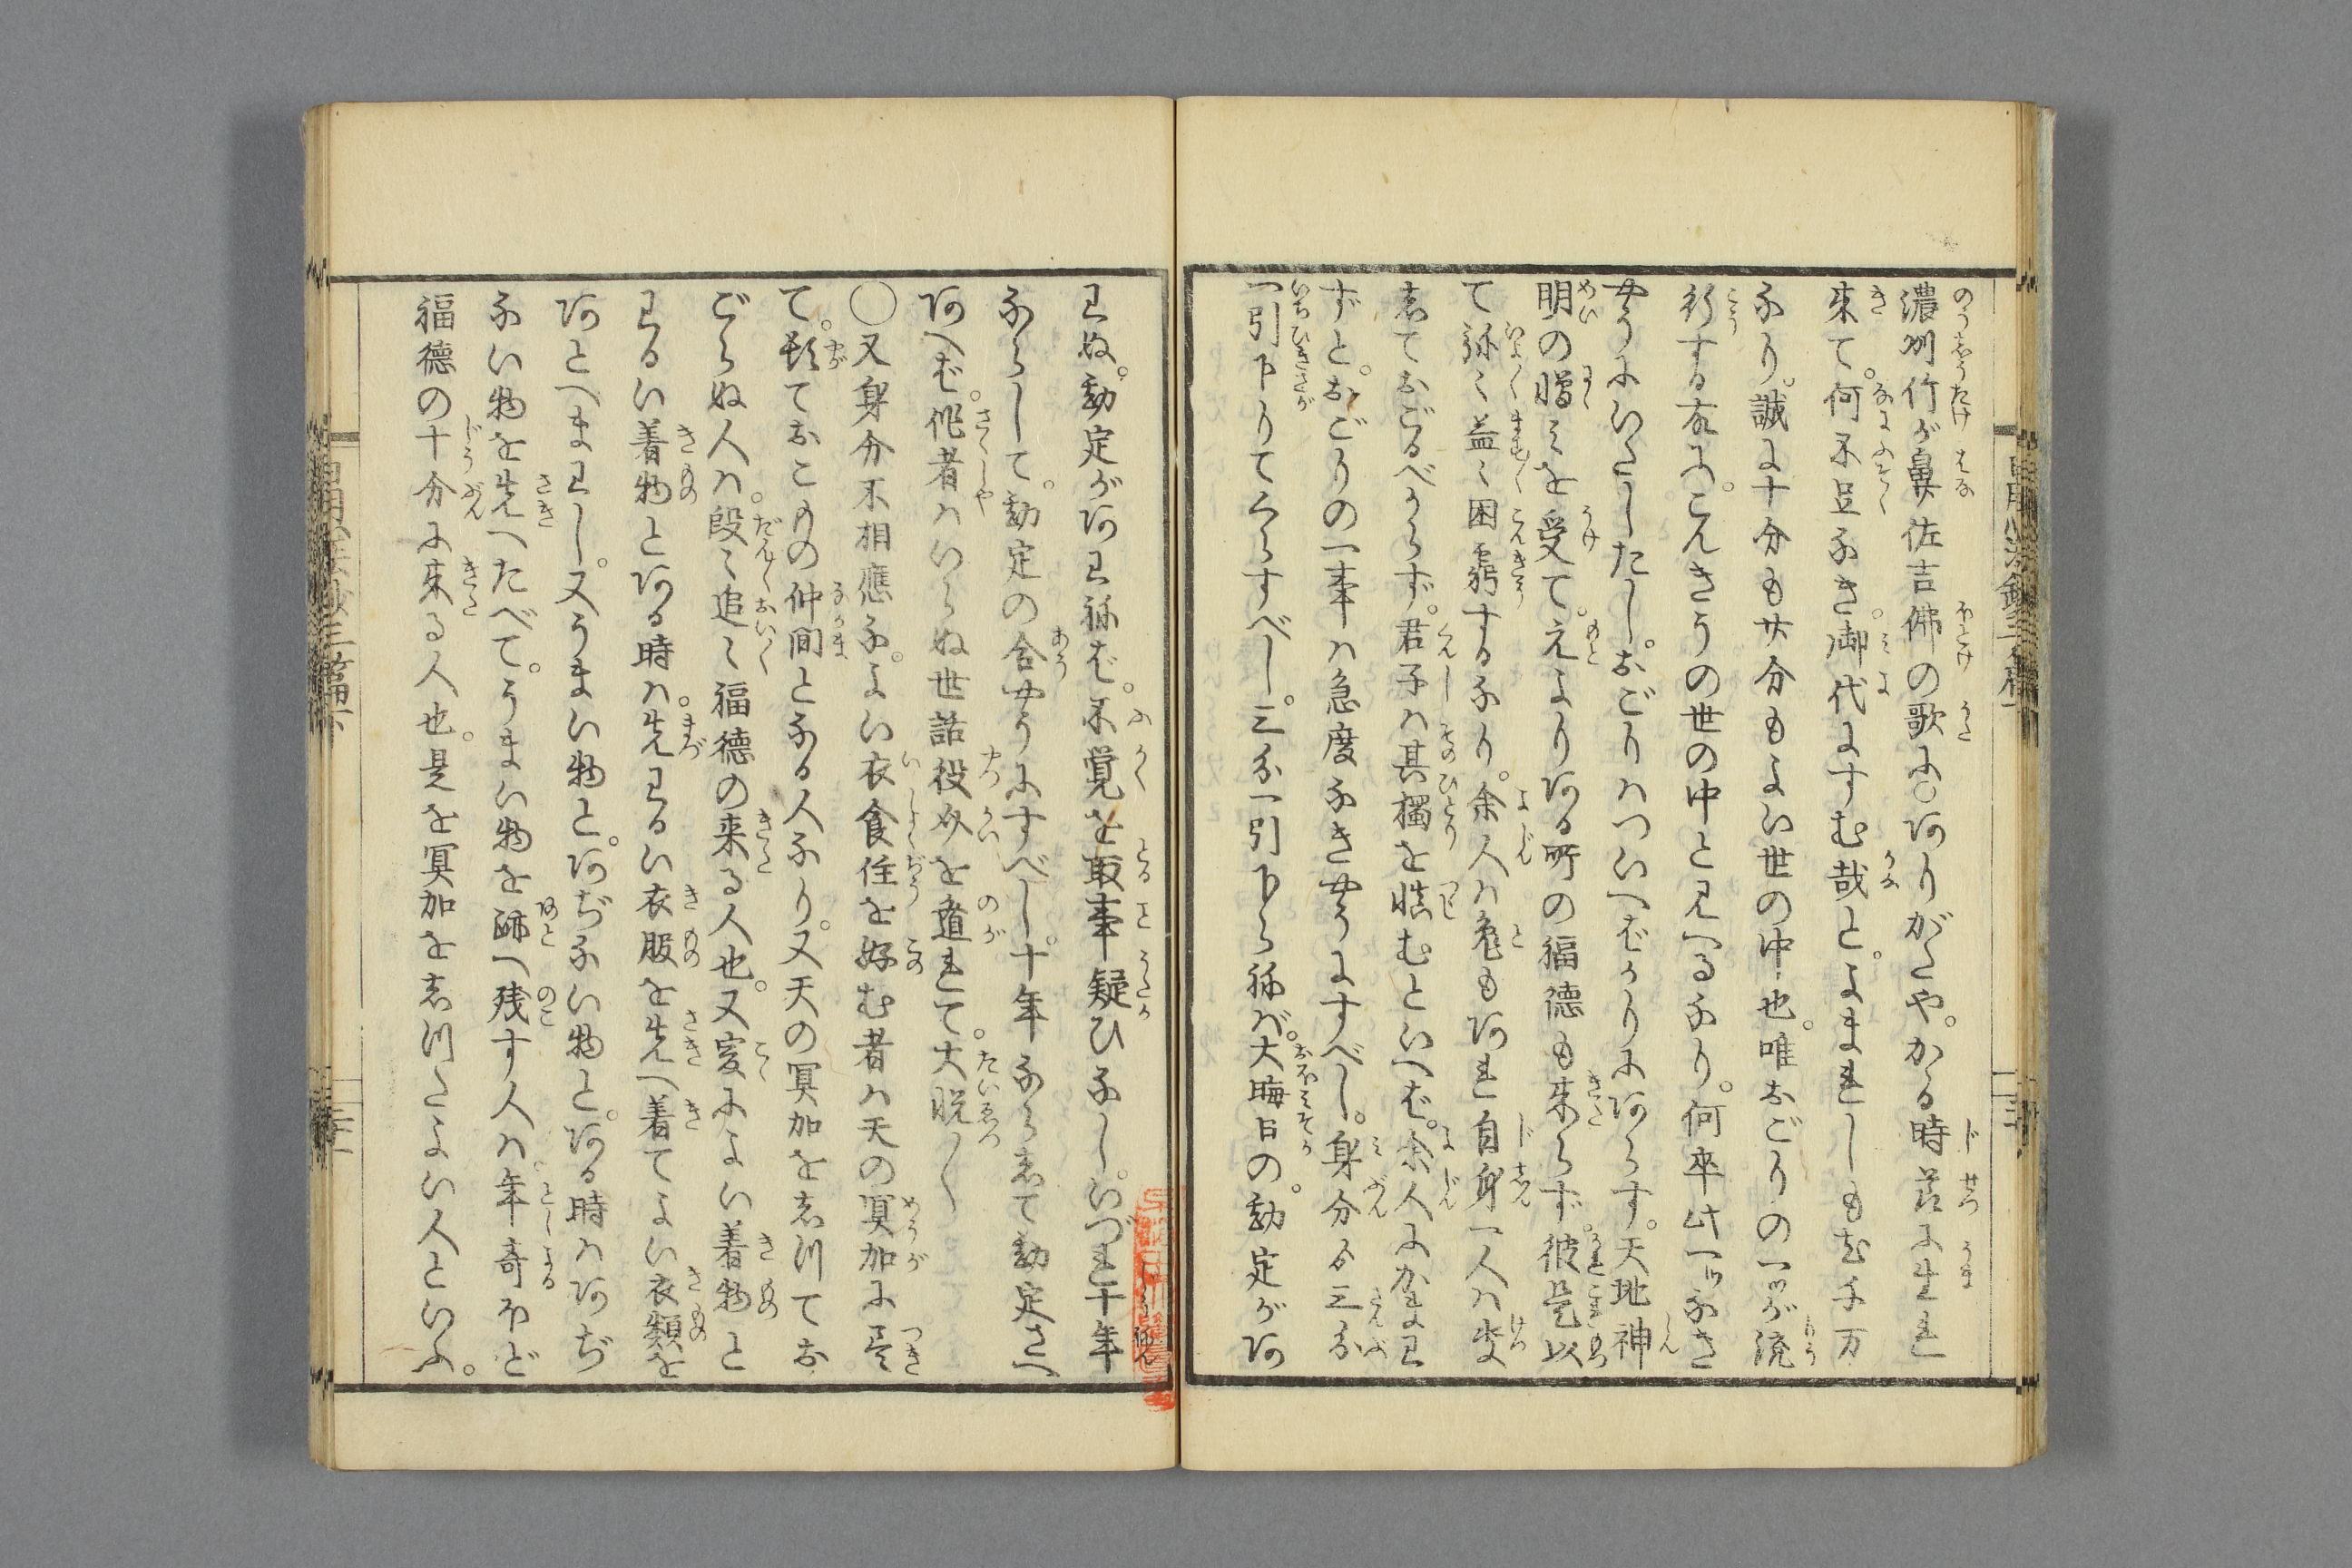 濃州竹が鼻佐吉佛の歌に○ありがたや。かゝる時節に生れ
来て。何不足なき。御代にすむ哉と。よまれしも尤千万
なり。誠に十分も廿分もよい世の中也。唯おごりの一ツが流
行する故に。こんきうの世の中と見へるなり。何卒此一ツなき
やうにいたしたし。おごりはついへばかりにあらす。天地神
明の憎みを受て。元よりある所の福徳も来らず。彼是以
て弥々益々困窮するなり。余人は兎もあれ自身一人は決
しておごるべからず。君子は其獨を慎むといへば。余人にかまは
ずと。おごりの一事は急度なきやうにすべし。身分より三分
一引下りてくらすべし。三分一引下らねば。大晦日の。勘定があ
はぬ。勘定があはねば。不覚を取事疑ひなし。いづれ十年
ならして。勘定の合やうにすべし。十年ならして勘定さへ
あへば。作者はいらぬ世話役介を遁れて。大脱〳〵
○又身分不相應な。よい衣食住を好む者は天の冥加に尽
て。頓ておこもの仲間となる人なり。又天の冥加をしつてお
ごらぬ人は。段々追々福徳の来る人也。又爰によい着物と
わるい着物とある時は。先わるい衣服を先へ着てよい衣類を
あとへまはし。又うまい物と。あぢない物と。ある時はあぢ
ない物を先へたべて。うまい物を跡へ残す人は。年寄ほど
福徳の十分に来る人也。是を冥加をしつたよい人といふ。